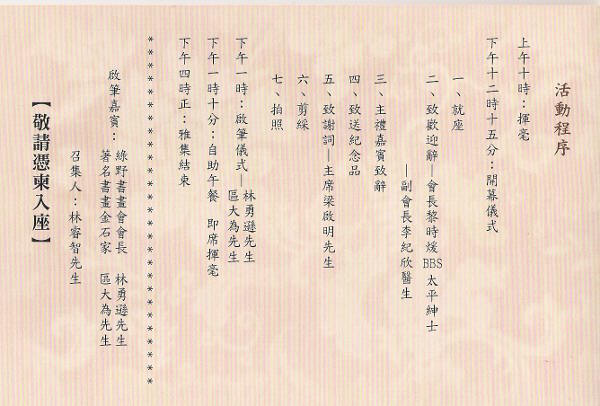 活動程序
上午十時：揮毫
下午十二時十五分：開幕儀式
一、就座
二、致歡迎辭—會長黎時煖 BBS 太平紳士
—副會長李紀欣醫生
三、主禮嘉賓致辭
四、致送紀念品
五、致謝詞—主席梁啟明先生
六、剪綵
七、拍照
下午一時：啟筆儀式—林勇遜先生
區大為先生
下午一時十分：自助午餐 即席揮毫
下午四時正：雅集結束
* * * * * * * * * * * * * * * * * * * * * * * * * *
啟筆嘉賓：綠野書畫會會長 林勇遜先生
著名書畫金石家 區大為先生
召集人：林睿智先生
【敬請憑柬入座】